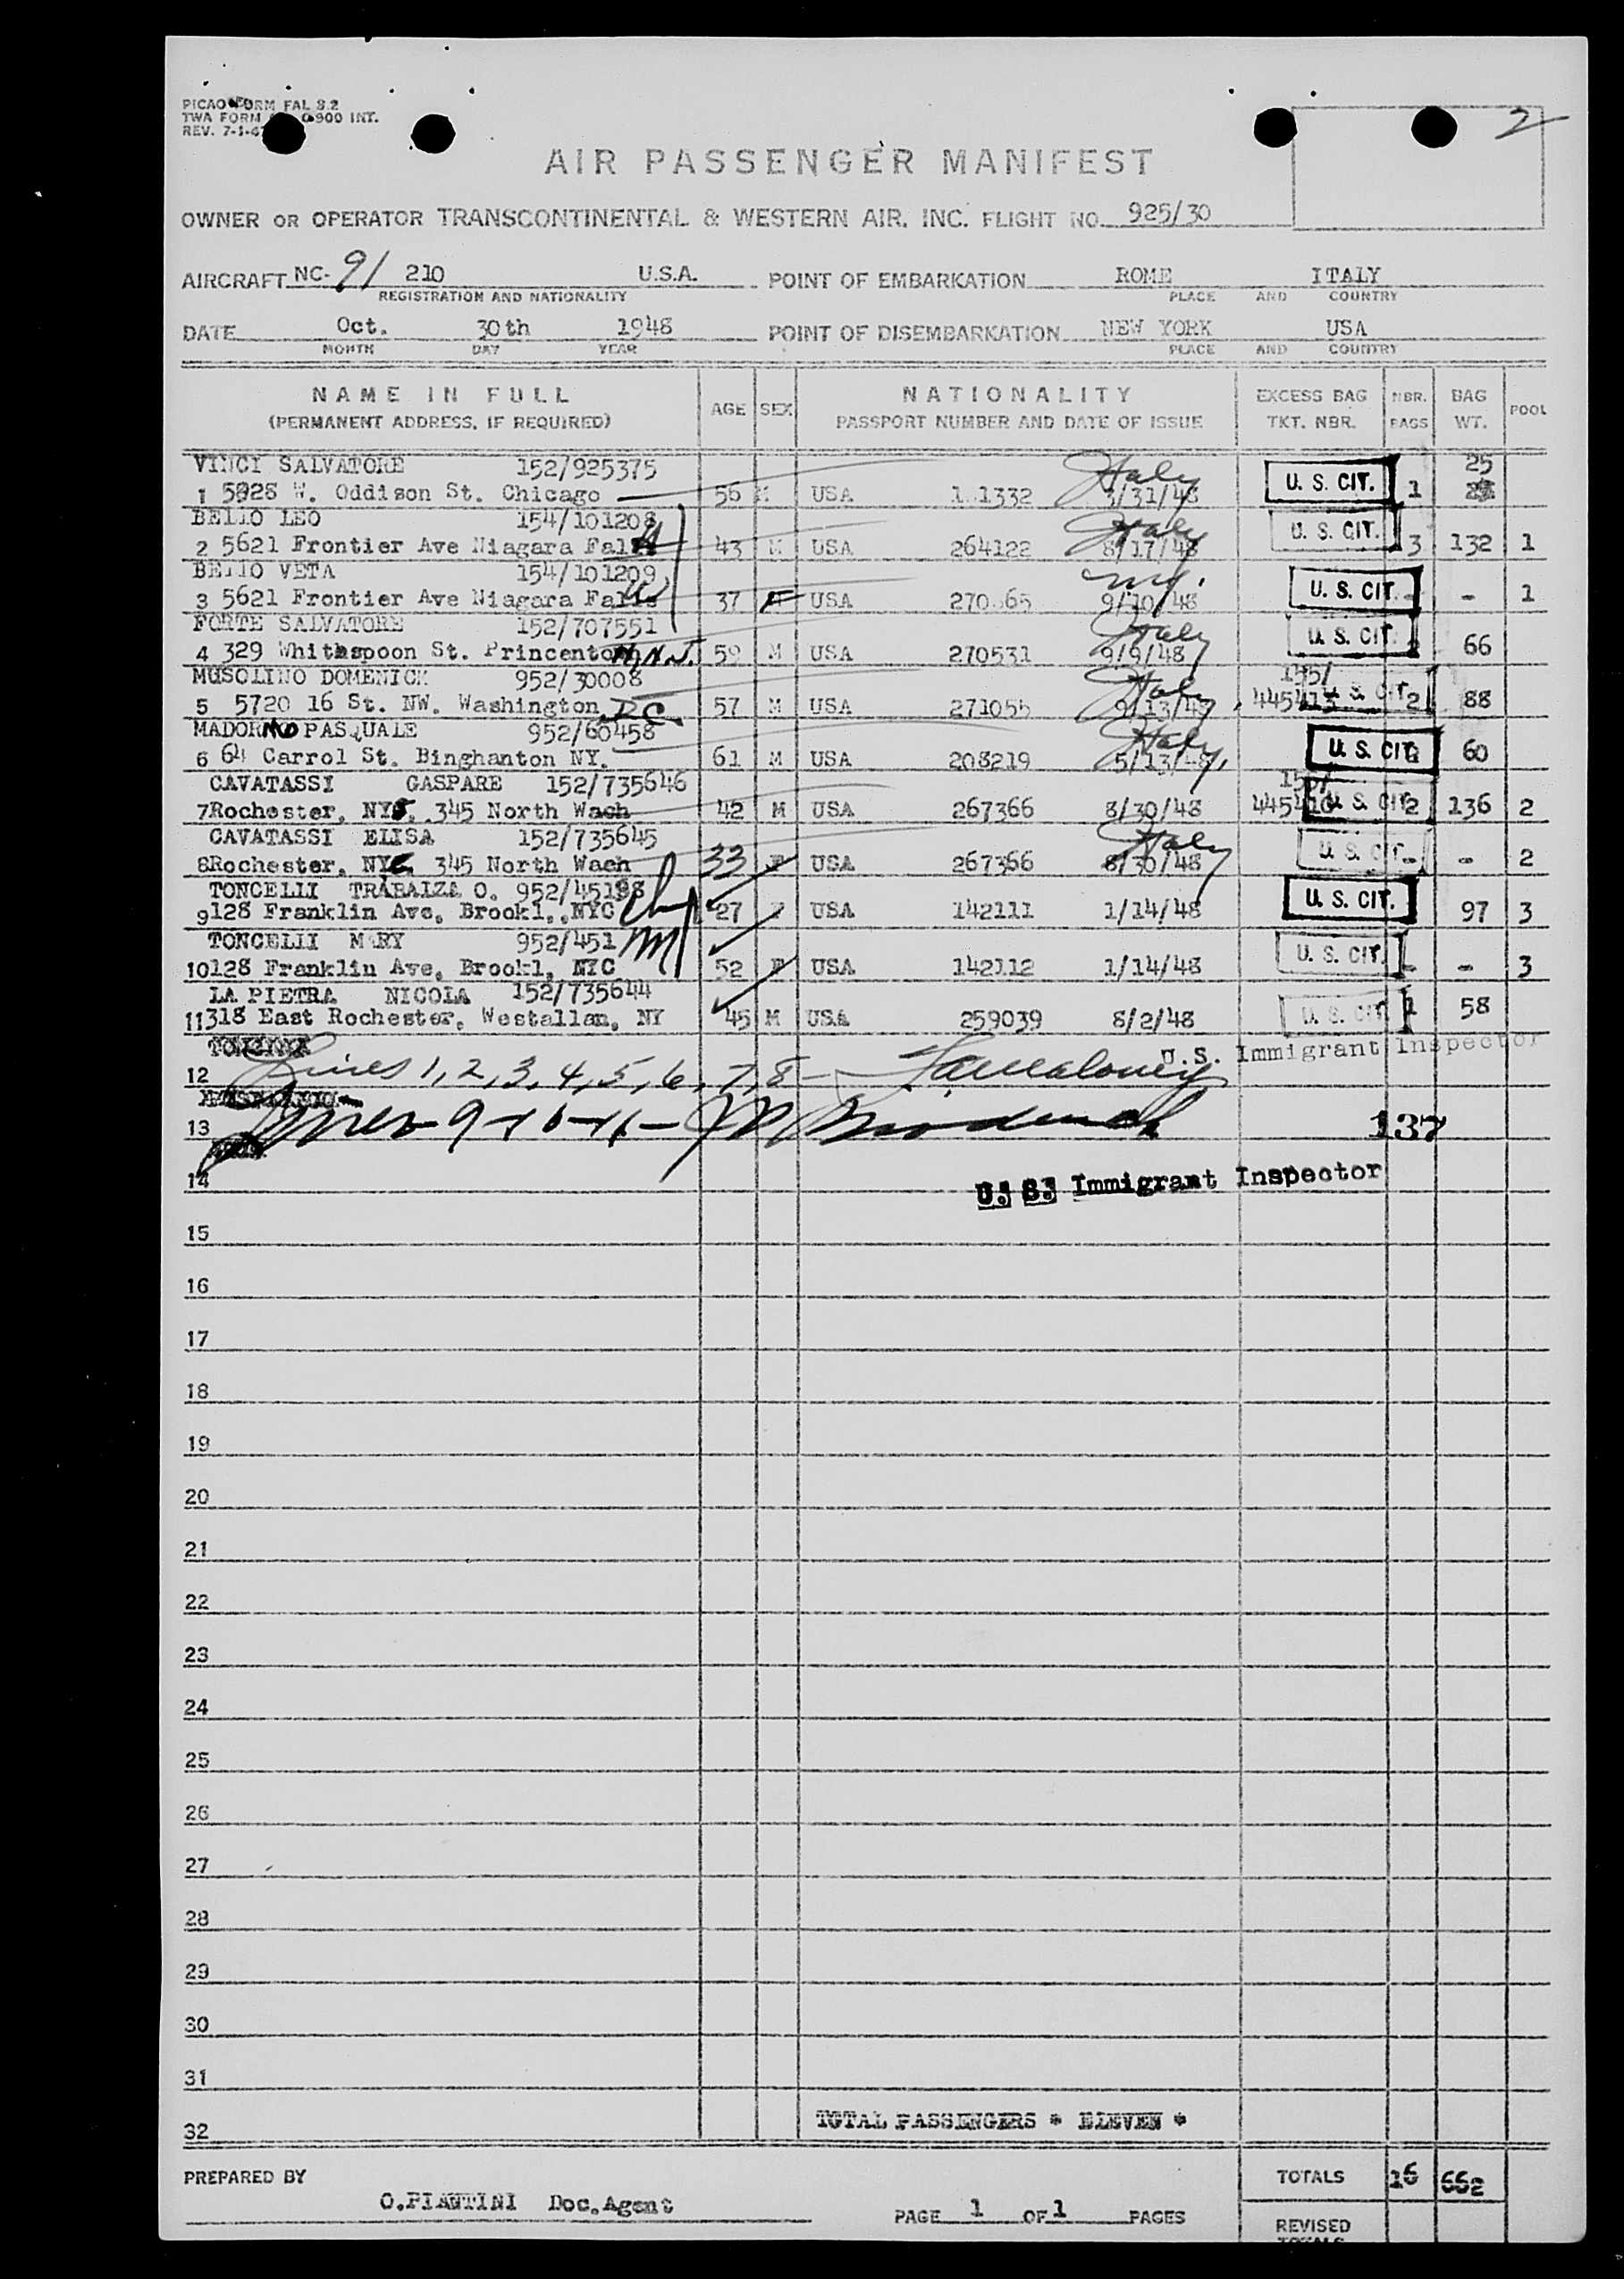 PICAO FORM FAL 8.2
TWA FORM 0-900 INT.
REV. 7-1-47
2
AIR PASSENGER MANIFEST
OWNER OR OPERATOR TRANSCONTINENTAL & WESTERN AIR, INC. FLIGHT NO. 925/30
AIRCRAFT NC-91 210 U.S.A. POINT OF EMBARKATION ROME ITALY
REGISTRATION AND NATIONALITY PLACE AND COUNTRY
DATE Oct. 30th 1948 POINT OF DISEMBARKATION NEW YORK USA
MONTH DAY YEAR PLACE AND COUNTRY
NAME IN FULL AGE SEX NATIONALITY EXCESS BAG NBR. BAG POOL
(PERMANENT ADDRESS, IF REQUIRED) PASSPORT NUMBER AND DATE OF ISSUE TKT. NBR. BAGS WT.
VINCI SALVATORE 152/925375 Italy 25
1 5828 W. Oddison St. Chicago 56 M USA 1332 3/31/48 U. S. CIT. 1
BELLO LEO 154/101208 Italy
2 5621 Frontier Ave Niagara Falls 43 M USA 264122 8/17/48 U. S. CIT. 3 132 1
BELLO VETA 154/101209 NY.
3 5621 Frontier Ave Niagara Falls 37 F USA 270 65 9/10/48 U. S. CIT. - - 1
FORTE SALVATORE 152/707551 Italy
4 329 Whithspoon St. Princenton, N.J. 59 M USA 270531 9/9/48 U. S. CIT. 66
MUSOLINO DOMENICK 952/30008 Italy 155/
5 5720 16 St. NW. Washington D.C. 57 M USA 271055 9/13/48 445413 U. S. CIT. 2 88
MADORMO PASQUALE 952/60458 Italy
6 64 Carrol St. Binghanton NY. 61 M USA 208219 5/13/48 U. S. CIT. 60
CAVATASSI GASPARE 152/735646 155/
7 Rochester, NY. 345 North Wach 42 M USA 267366 8/30/48 445410 U. S. CIT. 2 136 2
CAVATASSI ELISA 152/735645 Italy
8 Rochester, NY. 345 North Wach 33 F USA 267366 8/30/48 U. S. CIT. - - 2
TONCELLI TRABALZA O. 952/45198
9 128 Franklin Ave, Brookl., NYC 27 F USA 142111 1/14/48 U. S. CIT. 97 3
TONCELLI MARY 952/451
10 128 Franklin Ave, Brookl, NYC 52 F USA 142112 1/14/48 U. S. CIT. - - 3
LA PIETRA NICOLA 152/735644
11 318 East Rochester, Westallan, NY 45 M USA 259039 8/2/48 U. S. CIT. 1 58
U.S. Immigrant Inspector
12 Lines 1, 2, 3, 4, 5, 6, 7, 8 -
13 Lines - 9-10-11 - 137
14 U. S. Immigrant Inspector
15
16
17
18
19
20
21
22
23
24
25
26
27
28
29
30
31
32 TOTAL PASSENGERS * ELEVEN *
PREPARED BY TOTALS 16 662
O.PIANTINI Doc.Agent PAGE 1 OF 1 PAGES
REVISED
TOTALS